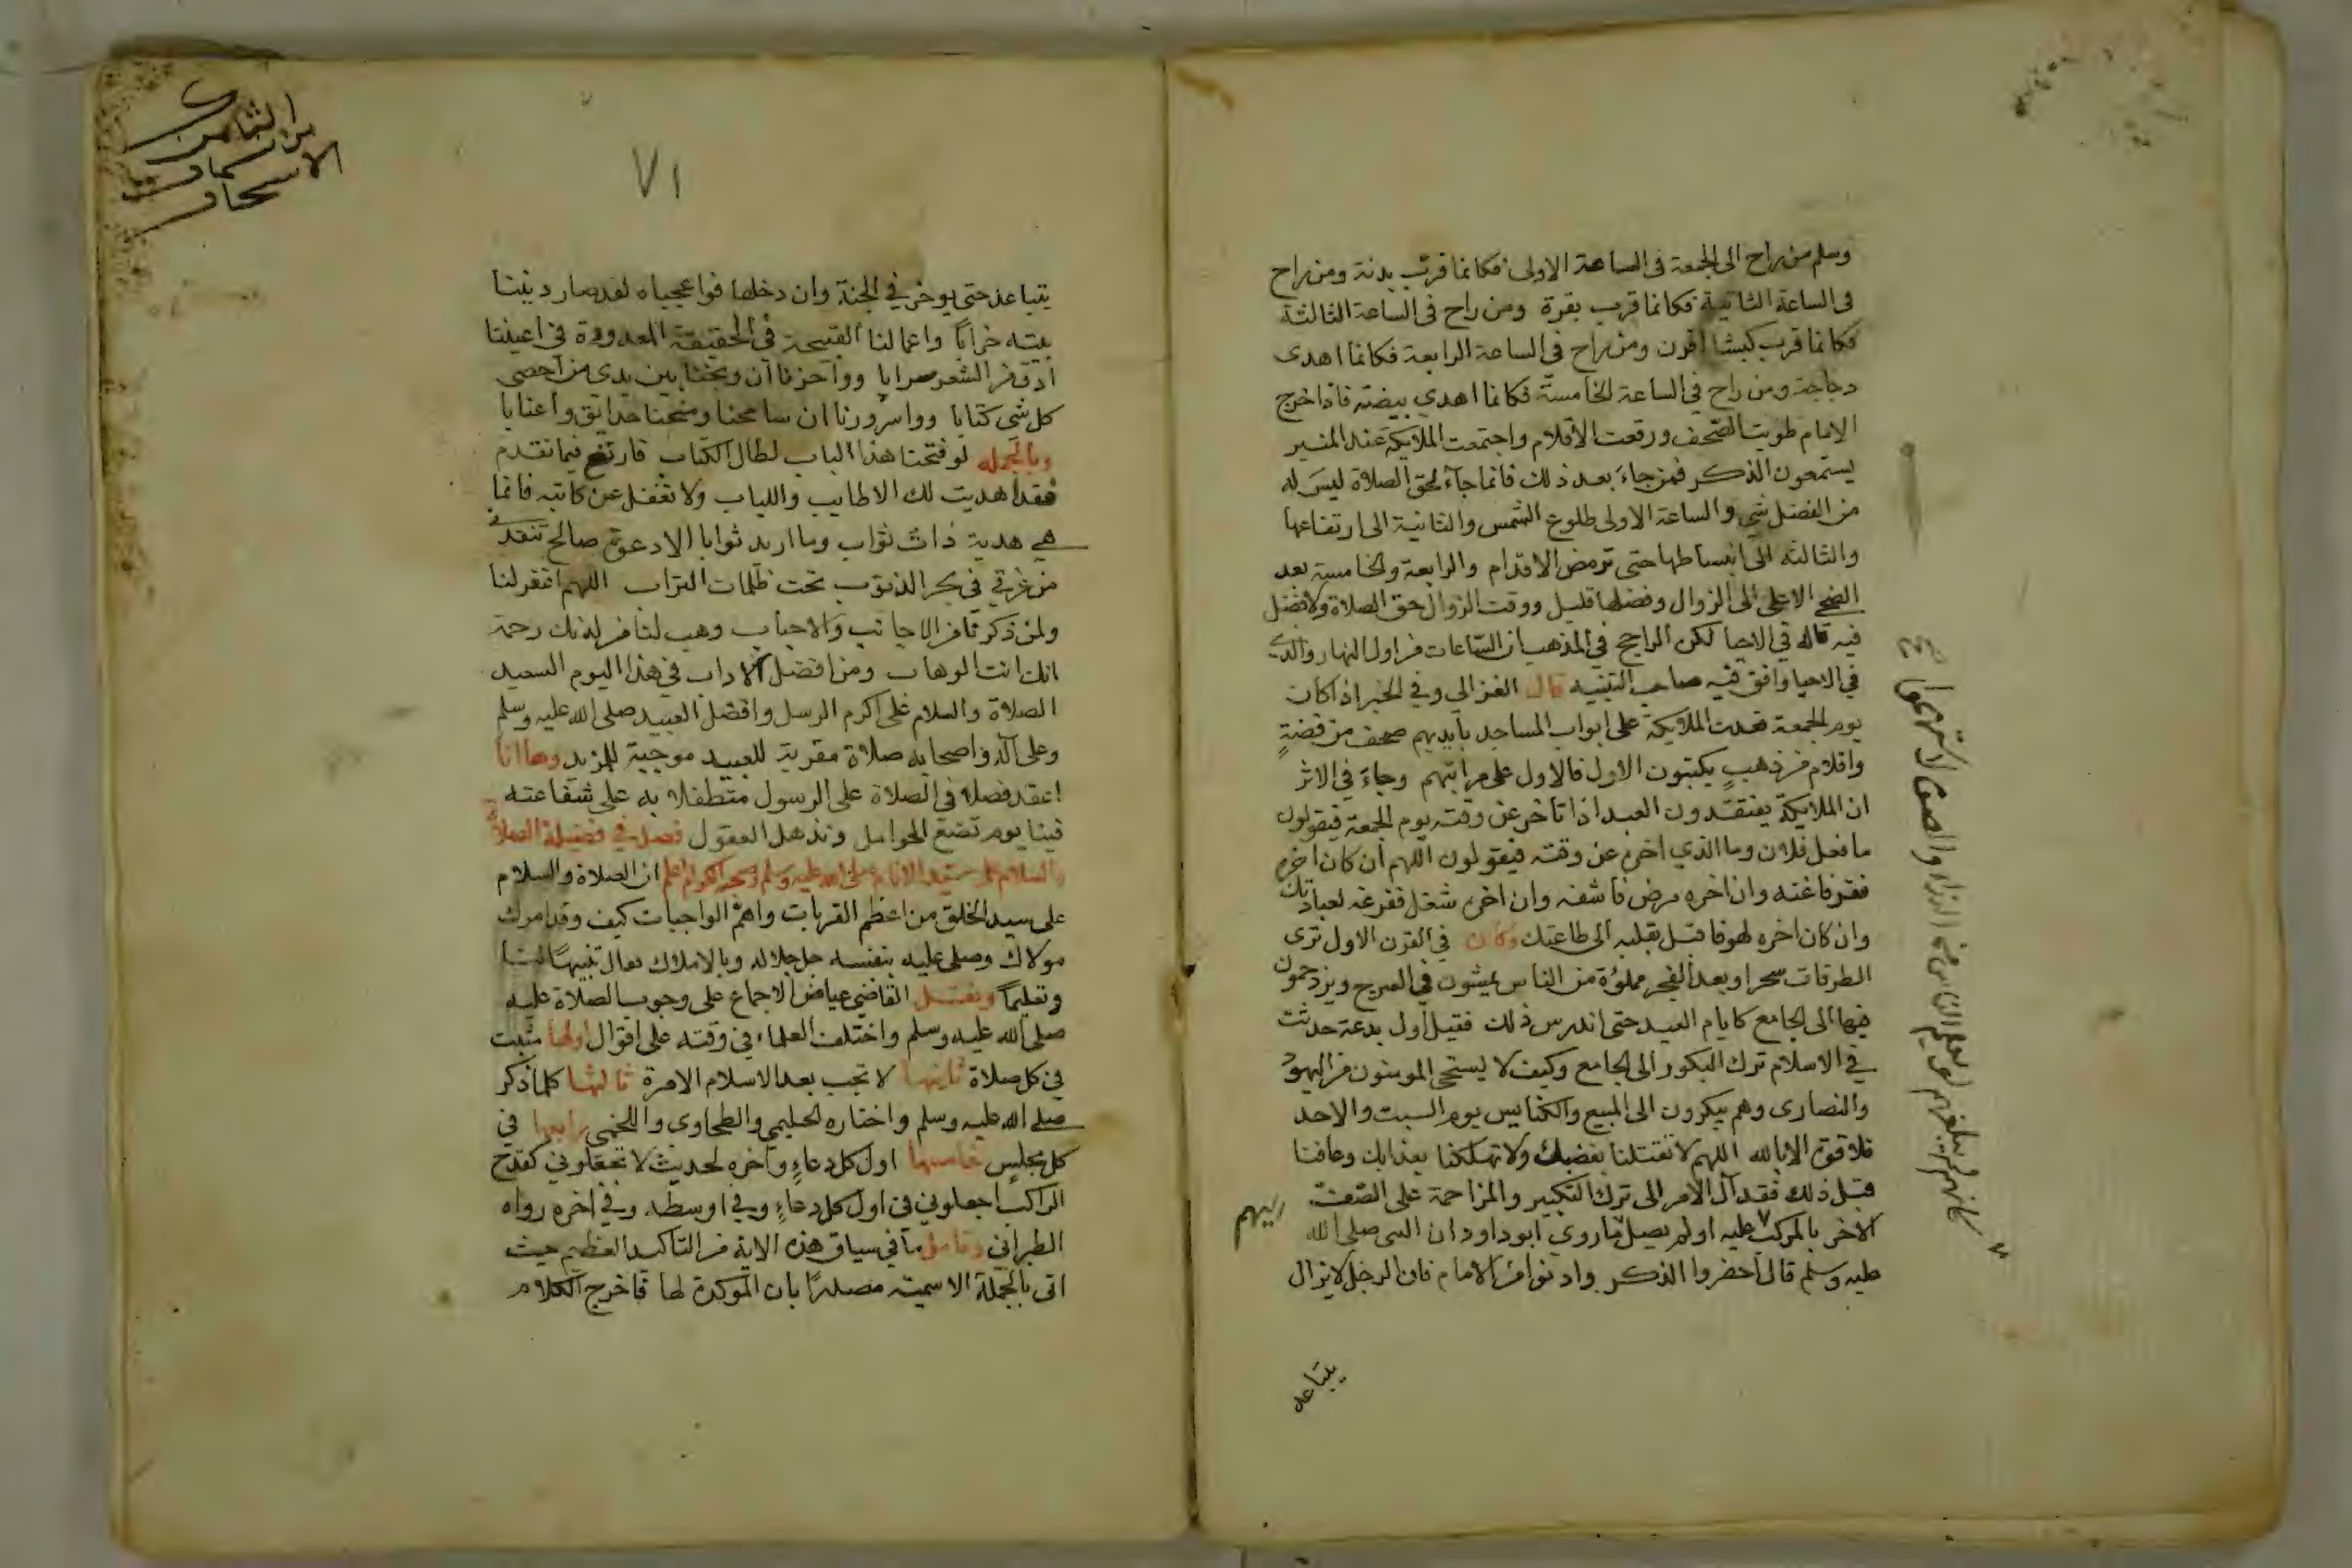 وسلم من راح الى الجمعة فى الساعة الاولى فكانما قرب بدنة ومن راح
فى الساعة الثانية فكانما قرب بقرة ومن راح فى الساعة الثالثة
فكانما قرب كبشا اقرن ومن راح في الساعة الرابعة فكانما اهدى
دجاجة ومن راح في الساعة الخامسة فكانما اهدي بيضة فاذا خرج
الامام طويت الصحف ورفعت الاقلام واجتمعت الملايكة عند المنبر
يستمعون الذكر فمن جاء بعد ذلك فانما جاء لحق الصلاة ليس له
من الفضل شي والساعة الاولى طلوع الشمس والثانية الى ارتفاعها
والثالثه الى انبساطها حتى ترمض الاقدام والرابعة والخامسة بعد
الضحى الاعلى الى الزوال وفضلها قليل ووقت الزوال حق الصلاة ولا فضل
فيه قاله في الاحيا لكن الراجح في المذهب ان الساعات من اول النهار والذي
في الاحيا وافق فيه صاحب التنبيه قال الغزالي وفي الخبر اذا كان
يوم الجمعة قعدت الملايكة على ابواب المساجد بايديهم صحف من فضة
واقلام من ذهب يكتبون الاول فالاول على مراتبهم وجاء في الاثر
ان الملايكة يفتقدون العبد اذا تاخر عن وقته يوم الجمعة فيقولون
ما فعل فلان وما الذي اخره عن وقته فيقولون اللهم ان كان اخره
فقر فاغنه وان اخره مرض فاشفه وان اخره شغل ففرغه لعبادتك
وان كان اخره لهو فاقبل بقلبه الى طاعتك وكان في القرن الاول ترى
الطرقات سحرا وبعد الفجر مملؤة من الناس يمشون في السرج ويزدحمون
فيها الى الجامع كايام العيد حتى اندرس ذلك فقيل اول بدعة حدثت
في الاسلام ترك البكور الى الجامع وكيف لا يستحي المومنون من اليهود
والنصارى وهم يبكرون الى البيع والكنايس يوم السبت والاحد
فلا قوة الا بالله اللهم لا تقتلنا بغضبك ولا تهلكنا بعذابك وعافنا
قبل ذلك فقد آل الامر الى ترك التبكير والمزاحمة على الصف
الاخر بالمركب عليه اولم يصل ما روى ابو داود ان النبى صلى الله
عليه وسلم قال احضروا الذكر وادنوا من الامام فان الرجل لا يزال
يتباعد
٧١
يتباعد حتى يوخر في الجنة وان دخلها فواعجباه لقد صار ديننا
بيته خرابا واعمالنا القبيحة في الحقيقة المعدودة في اعيننا
ادق من الشعر سرابا وواحزنا ان وبخنا بين يدى من احصى
كل شي كتابا وواسرورنا ان سامحنا ومنحنا حدايق واعنابا
وبالجمله لو فتحنا هذا الباب لطال الكتاب فارتع فيما تقدم
فقد اهديت لك الاطايب واللباب ولا تغفل عن كاتبه فانما
هي هدية ذات ثواب وما اريد ثوابا الا دعوة صالح تنقذ
من غرقي في بحر الذنوب تحت ظلمات التراب اللهم اغفر لنا
ولمن ذكرنا من الاجانب والاحباب وهب لنا من لدنك رحمة
انك انت الوهاب ومن افضل الاداب في هذا اليوم السعيد
الصلاة والسلام على اكرم الرسل وافضل العبيد صلى الله عليه وسلم
وعلى آله واصحابه صلاة مقربة للعبيد موجبة للمزيد وها انا
اعقد فصلا في الصلاة على الرسول متطفلا به على شفاعته
فينا يوم تضع الحوامل وتذهل العقول فصل في فضيلة الصلاة
والسلام على سيد الانام صلى الله عليه وسلم اعلم ان الصلاة والسلام
على سيد الخلق من اعظم القربات واهم الواجبات كيف وقد امرك
مولاك وصلى عليه بنفسه جل جلاله وبالاملاك تعال تنبيها لنا
وتعليما ونقل القاضي عياض الاجماع على وجوب الصلاة عليه
صلى الله عليه وسلم واختلف العلماء في وقته على اقوال اولها
في كل صلاة ثانيها لا تجب بعد الاسلام الا مرة ثالثها كلما ذكر
صلى الله عليه وسلم واختاره الحليمي والطحاوى واللخمى رابعها في
كل مجلس خامسها اول كل دعاء وآخره لحديث لا تجعلوني كقدح
الراكب اجعلوني فى اول كل دعاء وفي اوسطه وفي اخره رواه
الطبراني وتامل ما في سياق هذه الاية من التاكيد العظيم حيث
اتى بالجملة الاسمية مصدرا بان الموكدة لها فاخرج الكلام